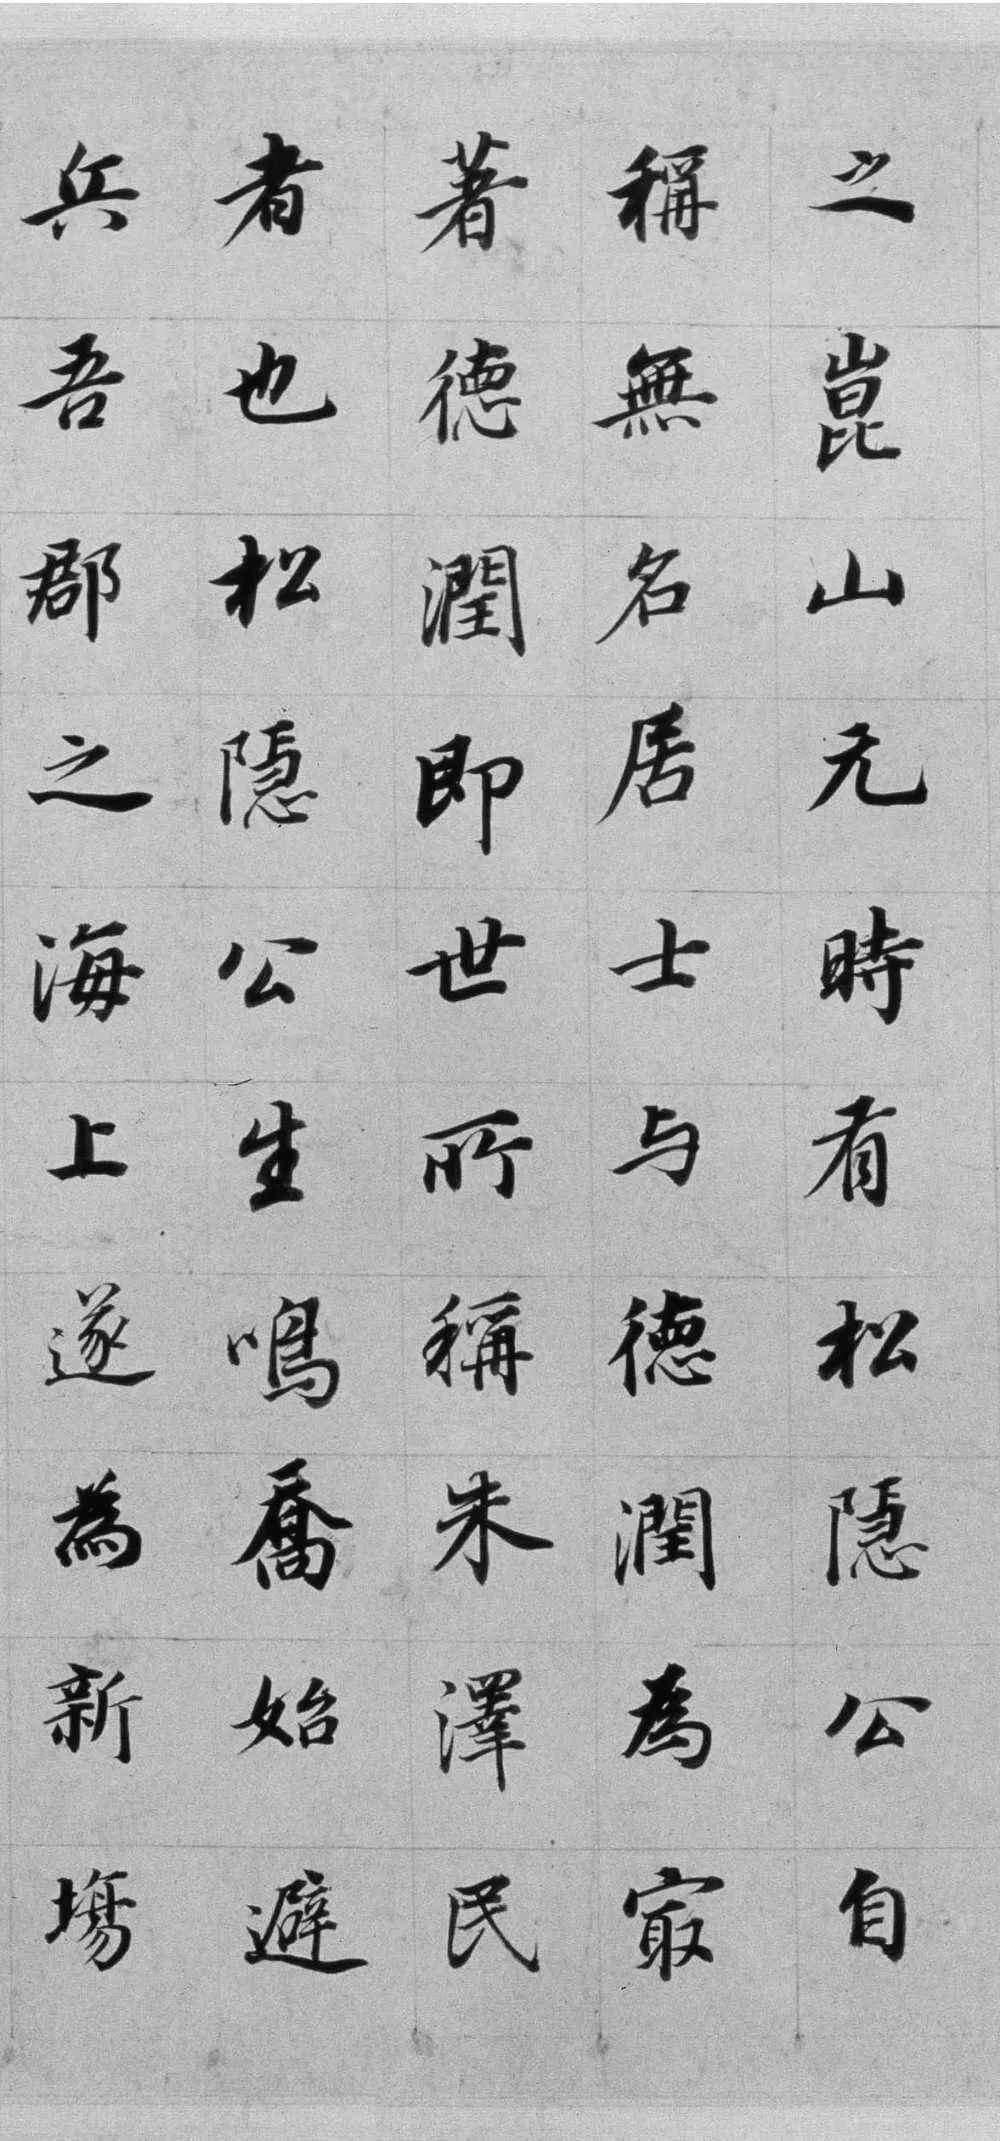 之崑山元時有松隱公自
稱無名居士与德潤為㝡
著德潤即世所稱朱澤民
者也松隱公生鳴喬始避
兵吾郡之海上遂為新塲